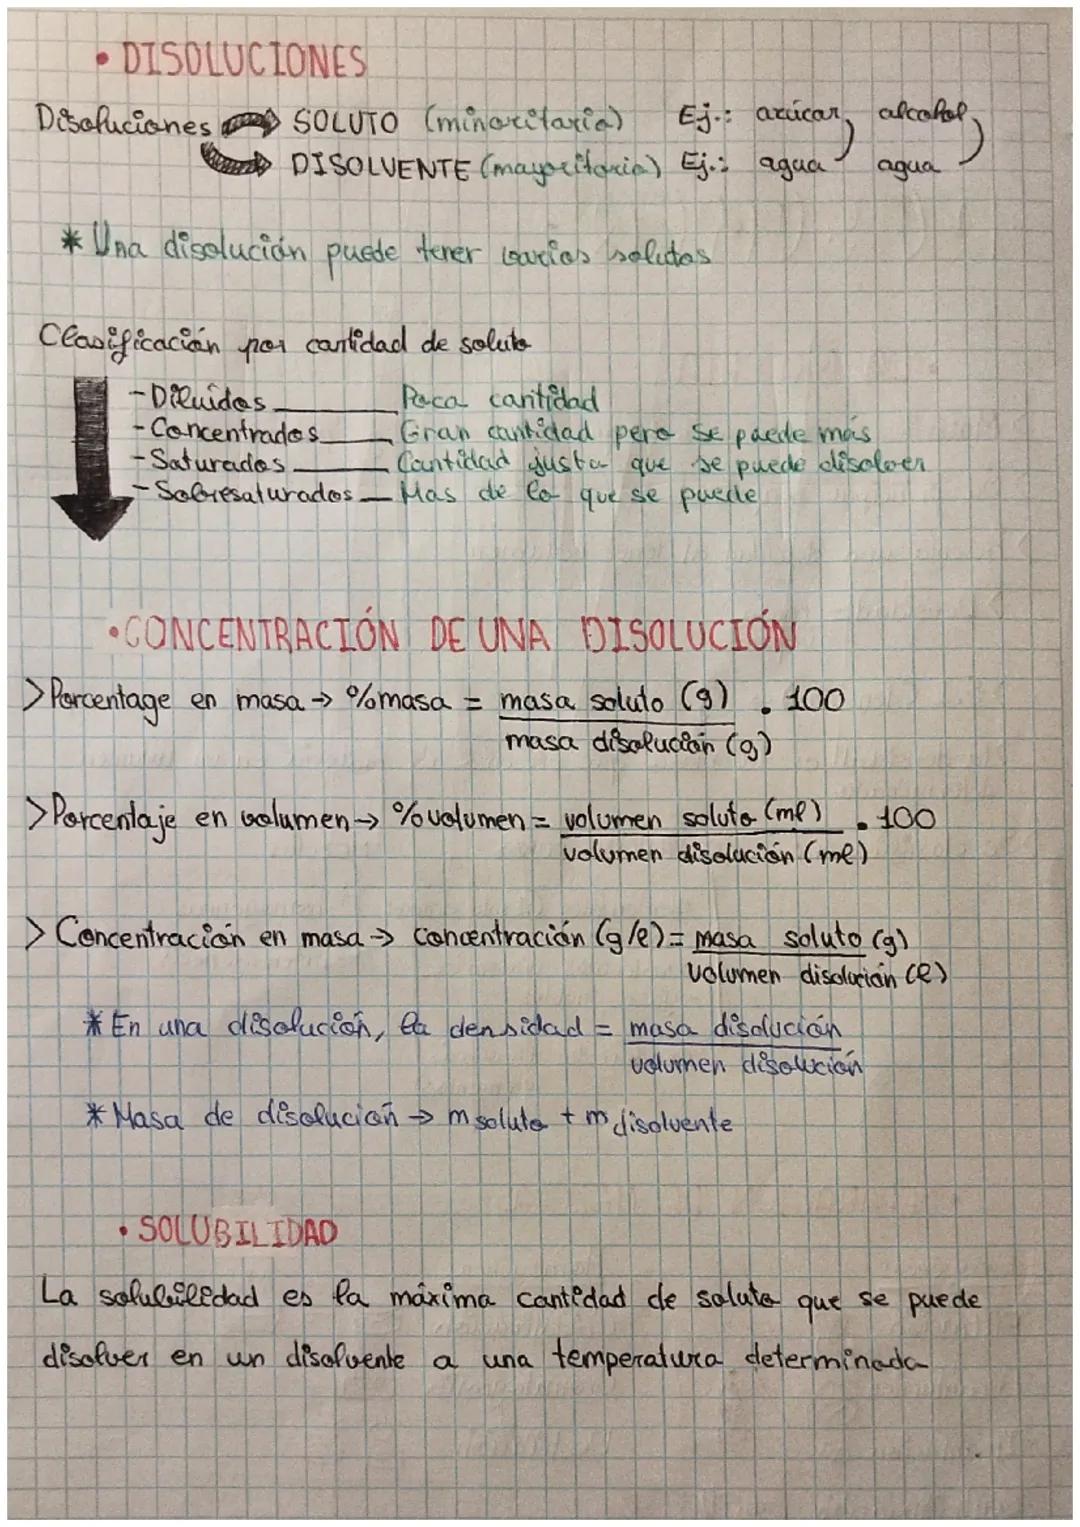 • DISOLUCIONES
Disoluciones SOLUTO (minoritaria) Ej.: azúcar, alcohol,
DISOLVENTE (mayoritaria) Ej.: agua agua
* Una disolución puede tener varios solutos
Clasificación por cantidad de soluto
- Diluidos Poca cantidad
- Concentrados Gran cantidad pero se puede más
- Saturados Cantidad justa que se puede disolver
- Sobresaturados Mas de lo que se puede
• CONCENTRACIÓN DE UNA DISOLUCIÓN
> Porcentage en masa → % masa = masa soluto (g) . 100
masa disolución (g)
> Porcentaje en volumen → % volumen = volumen soluto (ml) . 100
volumen disolución (ml)
> Concentración en masa → concentración (g/l) = masa soluto (g)
volumen disolución (l)
* En una disolución, la densidad = masa disolución
volumen disolución
* Masa de disolución → m soluto + m disolvente
• SOLUBILIDAD
La solubilidad es la máxima cantidad de soluto que se puede
disolver en un disolvente a una temperatura determinada